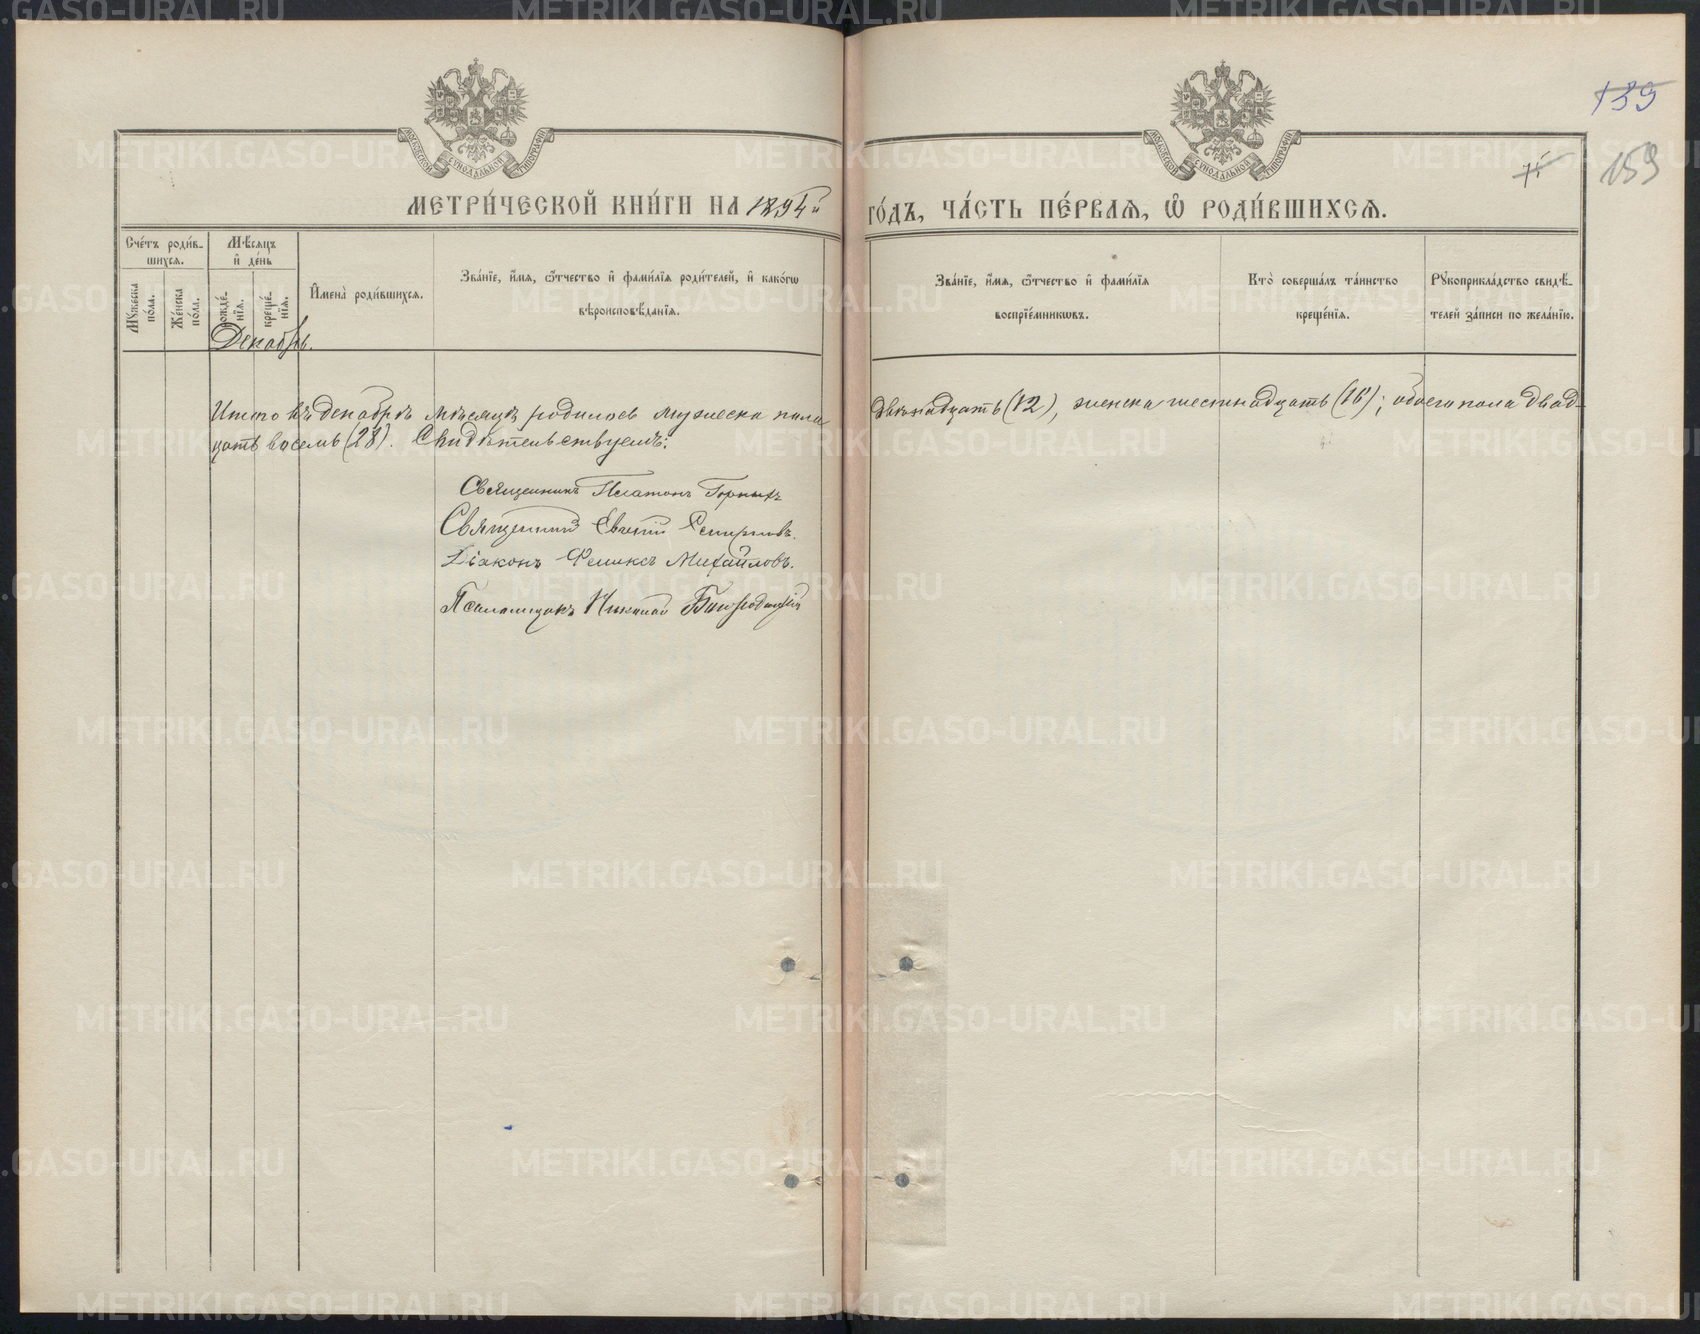 139
159
МОСКОВСКОЙ СѴНОДАЛЬНОЙ ТИПОГРАФІИ
МОСКОВСКОЙ СѴНОДАЛЬНОЙ ТИПОГРАФІИ
МЕТРИ́ЧЕСКОЙ КНИ́ГИ НА 1894й ГО́ДЪ, ЧА́СТЬ ПЕ́РВАѦ, Ѡ РОДИ́ВШИХСѦ.
Сче́тъ роди́вшихсѧ.
Мꙋ́жеска по́ла.
Же́нска по́ла.
Мѣ́сѧцъ и҆ де́нь
рожде́нїѧ.
креще́нїѧ.
И҆мена̀ роди́вшихсѧ.
Зва́нїе, и҆́мѧ, ѻ҆́тчество и҆ фами́лїѧ роди́телей, и҆ како́гѡ вѣроисповѣ́данїѧ.
Зва́нїе, и҆́мѧ, ѻ҆́тчество и҆ фами́лїѧ воспрїе́мникѡвъ.
Кто̀ соверша́лъ та́инство креще́нїѧ.
Рꙋкоприкла́дство свидѣ́телей за́писи по жела́нїю.
Декабрь.
Итого въ декабрѣ мѣсяцѣ родилось мужеска пола двѣнадцать (12), женска шестнадцать (16); обоего пола двад-
цать восемь (28). Свидѣтельствуемъ:
Священникъ Платонъ Горныхъ
Священникъ Евгеній
Діаконъ Феликсъ Михайловъ.
Псаломщикъ Николай
METRIKI.GASO-URAL.RU